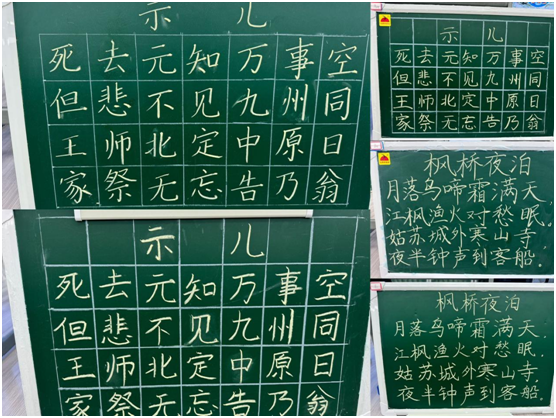 示 儿
死去元知万事空
但悲不见九州同
王师北定中原日
家祭无忘告乃翁
示 儿
死去元知万事空
但悲不见九州同
王师北定中原日
家祭无忘告乃翁
示 儿
死去元知万事空
但悲不见九州同
王师北定中原日
家祭无忘告乃翁
枫桥夜泊
月落乌啼霜满天.
江枫渔火对愁眠.
姑苏城外寒山寺
夜半钟声到客船.
枫桥夜泊
月落乌啼霜满天.
江枫渔火对愁眠.
姑苏城外寒山寺
夜半钟声到客船